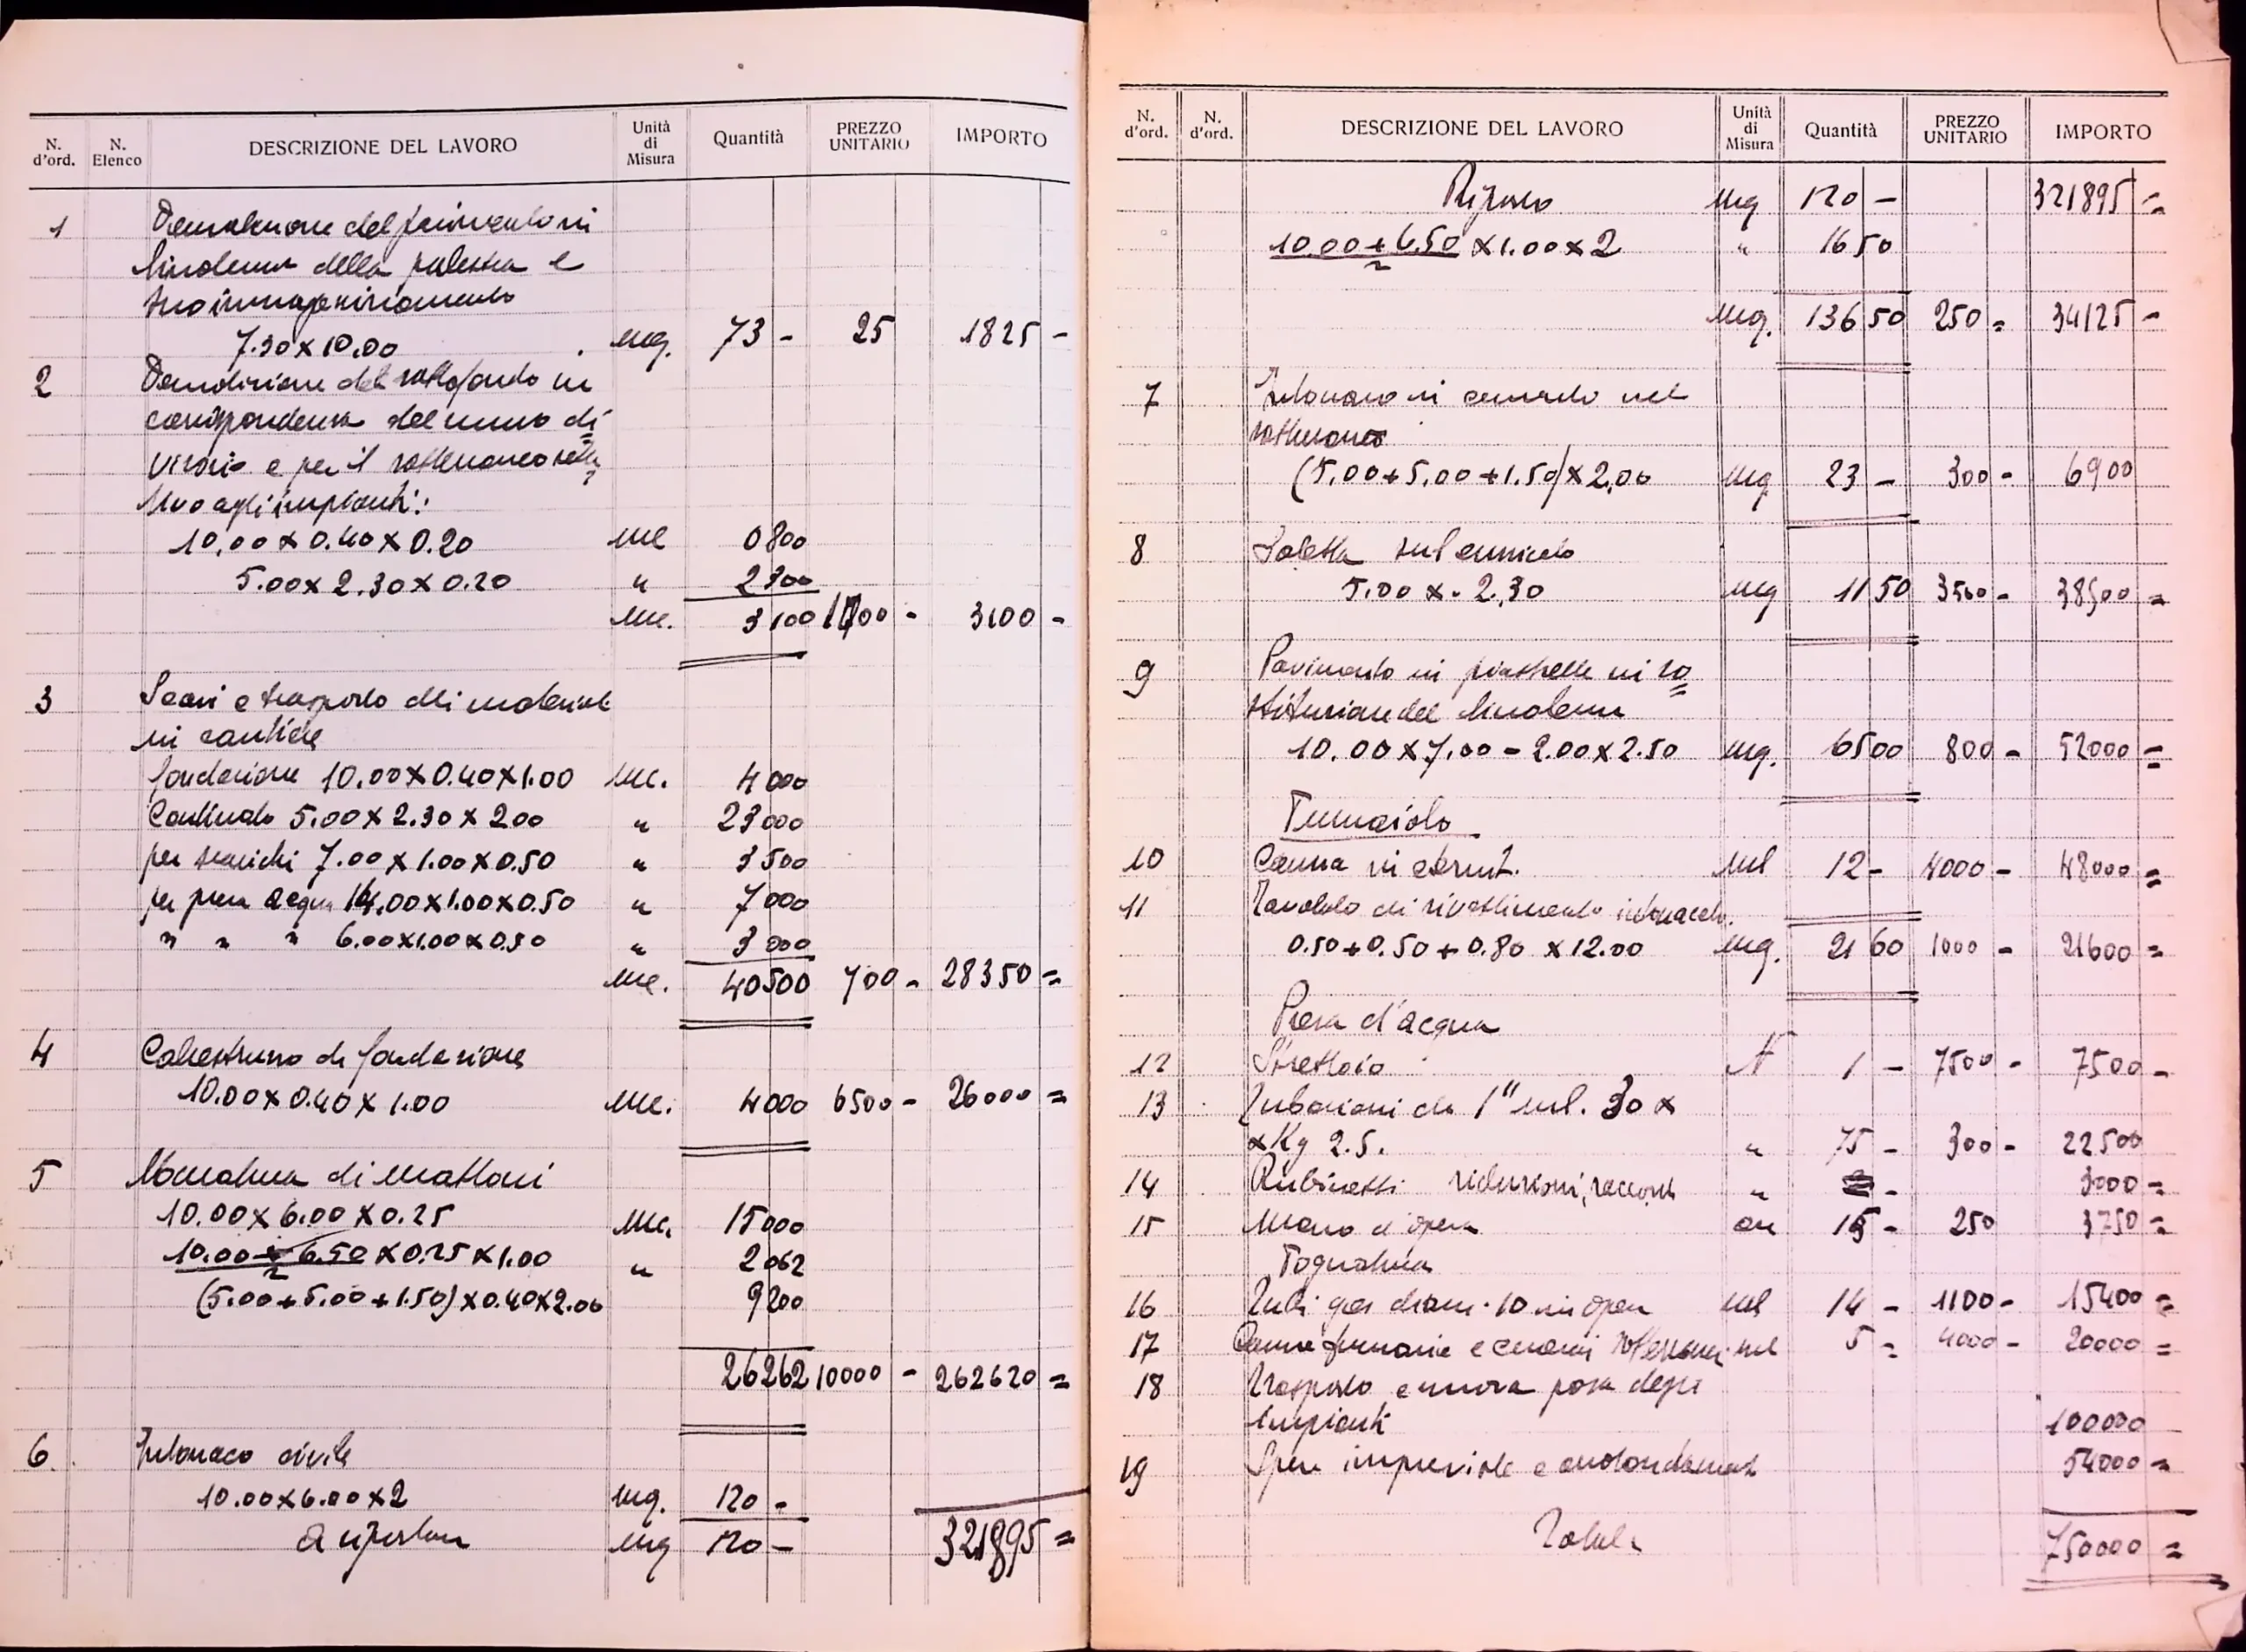 N. d'ord. N. Elenco DESCRIZIONE DEL LAVORO Unità di Misura Quantità PREZZO UNITARIO IMPORTO
1 Demolizione del pavimento in
linoleum della palestra e
suo immagazzinamento
7.30 x 10.00 mq. 73 - 25 1825 -
2 Demolizione del sottofondo in
corrispondenza del muro di=
visorio e per il sotterraneo rela=
tivo agli impianti:
10.00 x 0.40 x 0.20 mc 0800
5.00 x 2.30 x 0.20 " 2300
mc. 3100 1000 - 3100 -
3 Scavi e trasporto dei materiali
in cantiere
fondazione 10.00 x 0.40 x 1.00 mc. 4000
Cantinato 5.00 x 2.30 x 200 " 23000
per scarichi 7.00 x 1.00 x 0.50 " 3500
per presa acqua 14.00 x 1.00 x 0.50 " 7000
" " " 6.00 x 1.00 x 0.50 " 3000
mc. 40500 700 - 28350 =
4 Calcestruzzo di fondazione
10.00 x 0.40 x 1.00 mc. 4000 6500 - 26000 =
5 Muratura di mattoni
10.00 x 6.00 x 0.25 mc. 15000
10.00 + 6.50 x 0.25 x 1.00 " 2062
2
(5.00 + 5.00 + 1.50) x 0.40 x 2.00 9200
26262 10000 - 262620 =
6 Intonaco civile
10.00 x 6.00 x 2 mq. 120 -
a riportare mq 120 - 321895 =
N. d'ord. N. d'ord. DESCRIZIONE DEL LAVORO Unità di Misura Quantità PREZZO UNITARIO IMPORTO
Riporto mq 120 - 321895 =
10.00 + 6.50 x 1.00 x 2 " 1650
2
mq. 13650 250 = 34125 -
7 Intonaco in cemento nel
sotterraneo
(5.00 + 5.00 + 1.50) x 2.00 mq 23 - 300 - 6900
8 Soletta sul cunicolo
5.00 x 2.30 mq 1150 3500 - 38500 =
9 Pavimento in piastrelle in so=
stituzione del linoleum
10.00 x 7.00 - 2.00 x 2.50 mq. 6500 800 - 52000 =
Fumaiolo
10 Canna in eternit. ml 12 - 4000 - 48000 =
11 Tavolato di rivestimento intonacato.
0.50 + 0.50 + 0.80 x 12.00 mq. 2160 1000 - 21600 =
Presa d'acqua
12 Strettoio N 1 - 7500 - 7500 -
13 Tubazioni da 1" ml. 30 x
x Kg 2.5. " 75 - 300 - 22500
14 Rubinetti riduzioni, raccordi " - 3000 =
15 Mano d'opera ore 15 - 250 3750 =
Fognatura
16 Tubi gres diam. 10 in opera ml 14 - 1100 - 15400 =
17 Canne fumarie e camini sotterranei ml 5 = 4000 - 20000 =
18 Trasporto e nuova posa degli
impianti 100000
19 Spese impreviste e arrotondamenti 54000 =
Totale 750000 =